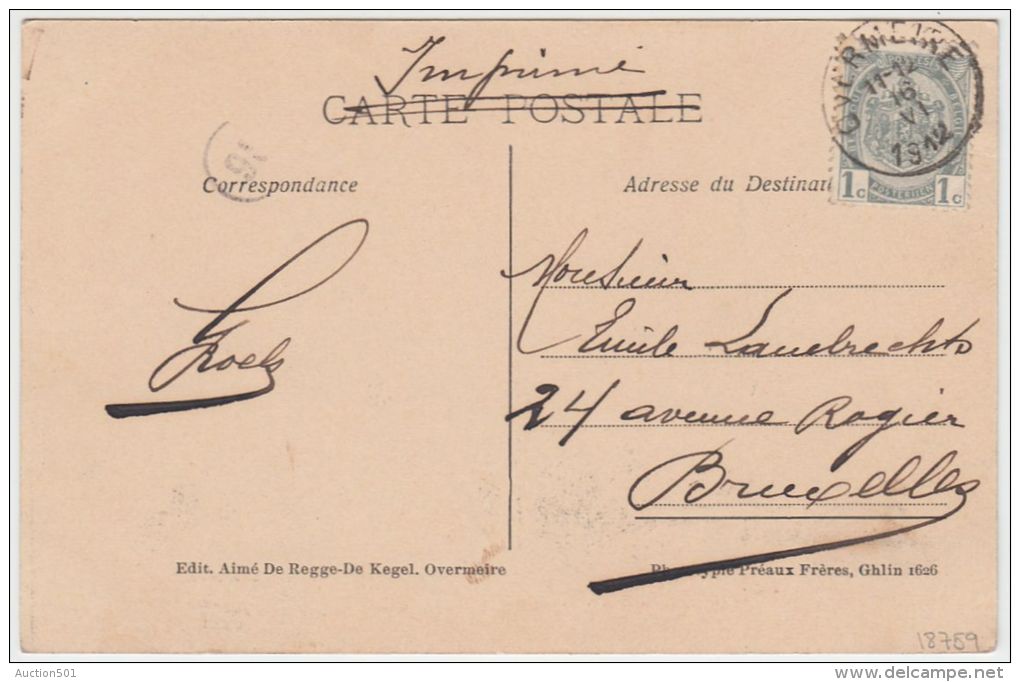 Imprimé
CARTE POSTALE
OVERMEIRE
11-12
16
VI
1912
POSTES
BELGIE
1c POSTERIJEN 1c
Correspondance
Adresse du Destinat
Monsieur
Emile Lambrechts
Roels
24 avenue Rogier
Bruxelles
Edit. Aimé De Regge-De Kegel. Overmeire
Phototypie Préaux Frères, Ghlin 1626
18759
Auction501
delcampe.net